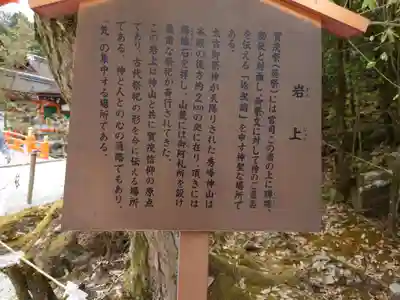 岩上
賀茂祭(葵祭)には宮司、この岩の上に蹲踞、
勅使と対面し、御祭文に対して神のご意志
を伝える「返祝詞」を申す神聖な場所で
ある。
太古御祭神が天降りされた秀峰神山は
本殿の後方約2kmの処に在り、頂きには
降臨石を拝し、山麓には御阿礼所を設け
厳粛な祭祀が斎行されてきた。
この岩上は神山と共に賀茂信仰の原点
であり、古代祭祀の形を今に伝える場所
である。神と人との心の通路でもあり、
「気」の集中する場所である。